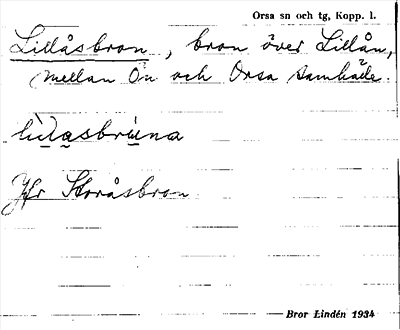 Orsa sn och tg, Kopp. l.
Lillåsbron, bron över Lillån,
mellan Ön och Orsa samhälle.
Jfr Storåsbron
Bror Lindén 1934